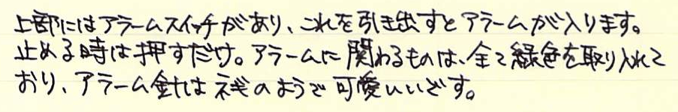 上部にはアラームスイッチがあり、これを引き出すとアラームが入ります。
止める時は押すだけ。アラームに関わるものは、全て緑色を取り入れて
おり、アラーム針はネギのようで可愛いいです。